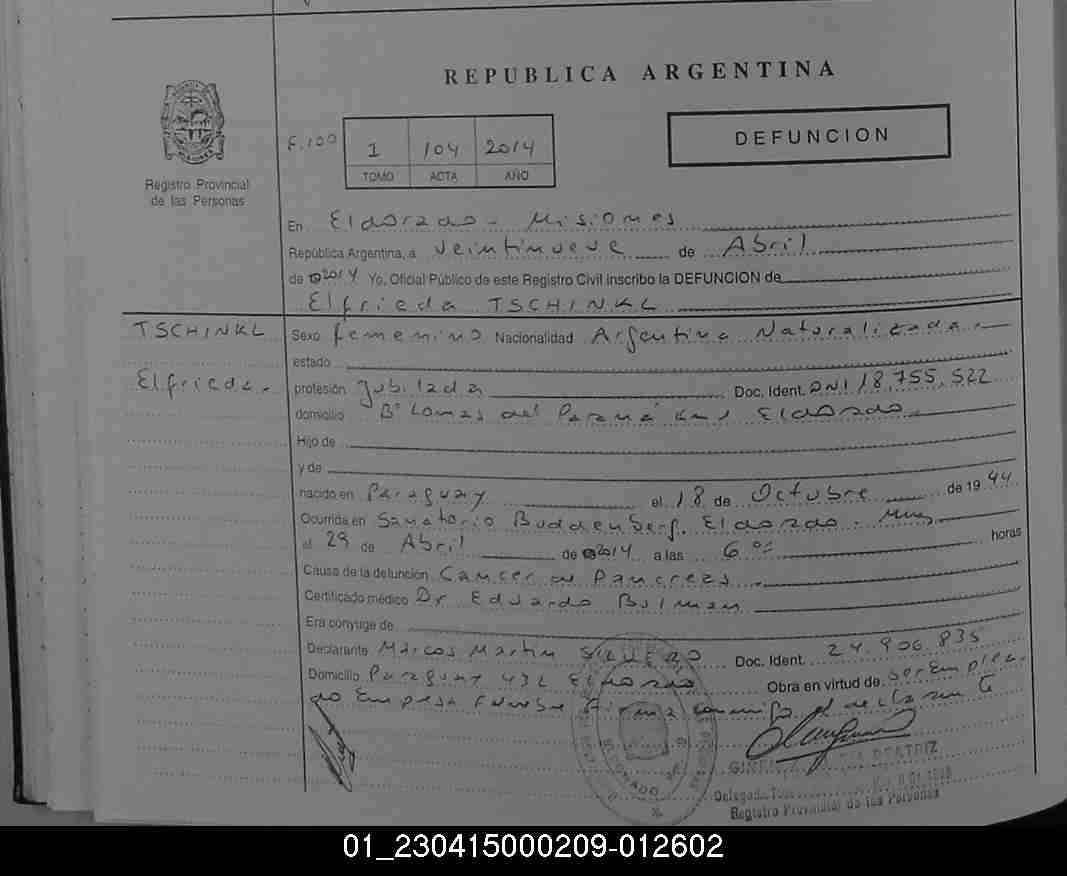 REPUBLICA ARGENTINA
Registro Provincial
de las Personas
F.100
1 104 2014
TOMO ACTA AÑO
DEFUNCION
En Eldorado - Misiones
República Argentina, a veintinueve de Abril
de 2014 Yo, Oficial Público de este Registro Civil inscribo la DEFUNCION de
Elfrieda TSCHINKL
TSCHINKL
Elfrieda.-
Sexo femenino Nacionalidad Argentina Naturalizada.-
estado
profesión Jubilada Doc. Ident. DNI 18.755.522
domicilio Bº Lomas del Paraná Eldorado
Hijo de
y de
nacido en Paraguay el 18 de Octubre de 1944
Ocurrida en Sanatorio Buddenberg. Eldorado.
el 29 de Abril de 2014 a las 6 horas
Causa de la defunción Cancer de Pancreas.
Certificado médico Dr Eduardo
Era conyuge de
Declarante Marcos Martin Doc. Ident. 24.906.835
Domicilio Paraguay 432 Eldorado Obra en virtud de ser emplea-
do Empresa Funebre Firma conmigo el declarante
BEATRIZ
Registro Provincial de las Personas
01_230415000209-012602